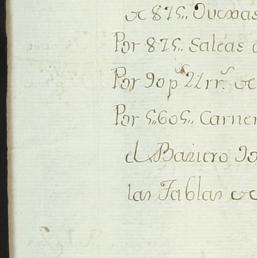 de 875,, Ouexas
Por 875,, Saleas
Por 90 p.s 21 rr.s de
Por 5,,605,, Carner
el Bañero 90
las Tablas de